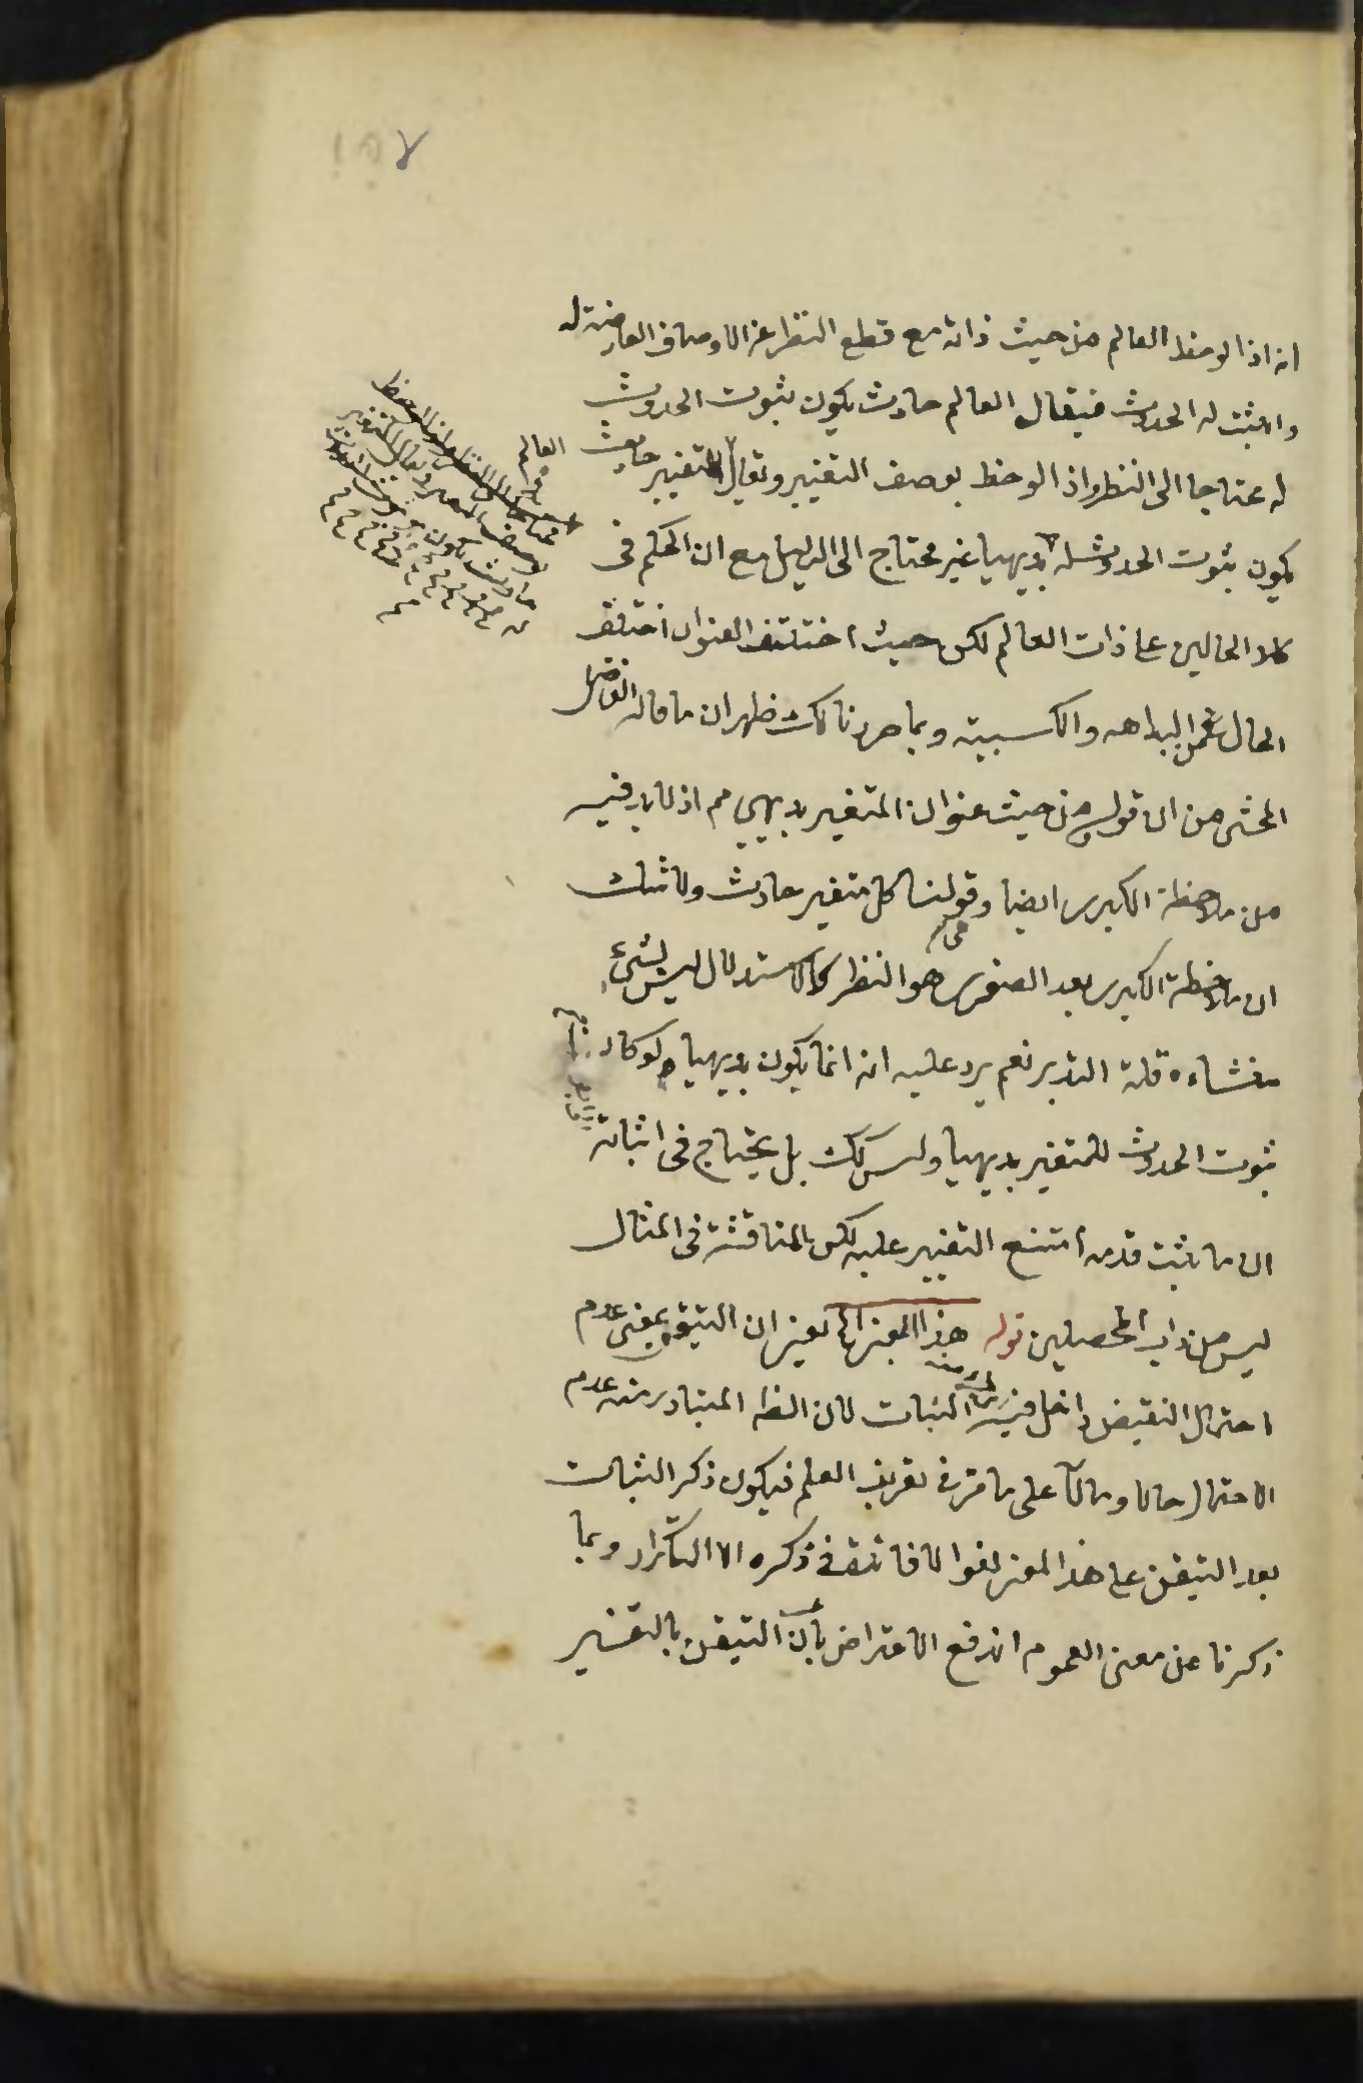 انه اذا لوحظ العالم من حيث ذاته مع قطع النظر عن الاوصاف العارضة له
واثبت له الحدوث فيقال العالم حادث يكون ثبوت الحدوث
له محتاجا الى النظر واذا لوحظ بوصف التغيير ويقال المتغير حادث
يكون ثبوت الحدوث له بديهيا غير محتاج الى الدليل مع ان الحكم فى
كلا الحالين على ذات العالم لكن حيث اختلف العنوان اختلف
الحال فى البداهه والكسبية وبما حررنا لك ظهر ان ما قاله الفاضل
المحشى من ان قوله من حيث عنوان المتغير بديهى مم اذ لا بد فيه
من ملاحظة الكبرى ايضا وهى قولنا كل متغير حادث ولا شك
ان ملاحظة الكبرى بعد الصغرى هو النظر والاستدلال ليس بشئ
منشاءه قلة التدبر نعم يرد عليه انه انما يكون بديهيا لو كان
ثبوت الحدوث للمتغير بديهيا وليس كك بل يحتاج فى اثباته
ان ما ثبت قدمه امتنع التغيير عليه لكن المناقشة فى المثال
ليس من داب المحصلين قوله هذا المعنى يعنى ان التيقن بمعنى عدم
احتمال النقيض داخل فيه الثبات لان الظ المتبادر منه عدم
الاحتمال حالا ومآلا على ما مر فى تعريف العلم فيكون ذكر الثبات
بعد التيقن على هذا المعنى لغوا لا فائدة فى ذكره الا التكرار وبما
ذكرنا من معنى العموم اندفع الاعتراض بان التيقن بالتفسير
العالم